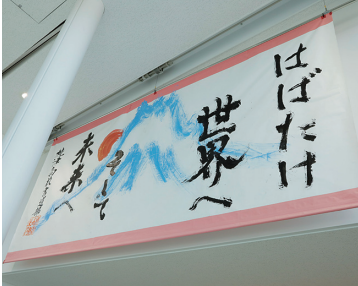 はばたけ
世界へ
そして
未来へ